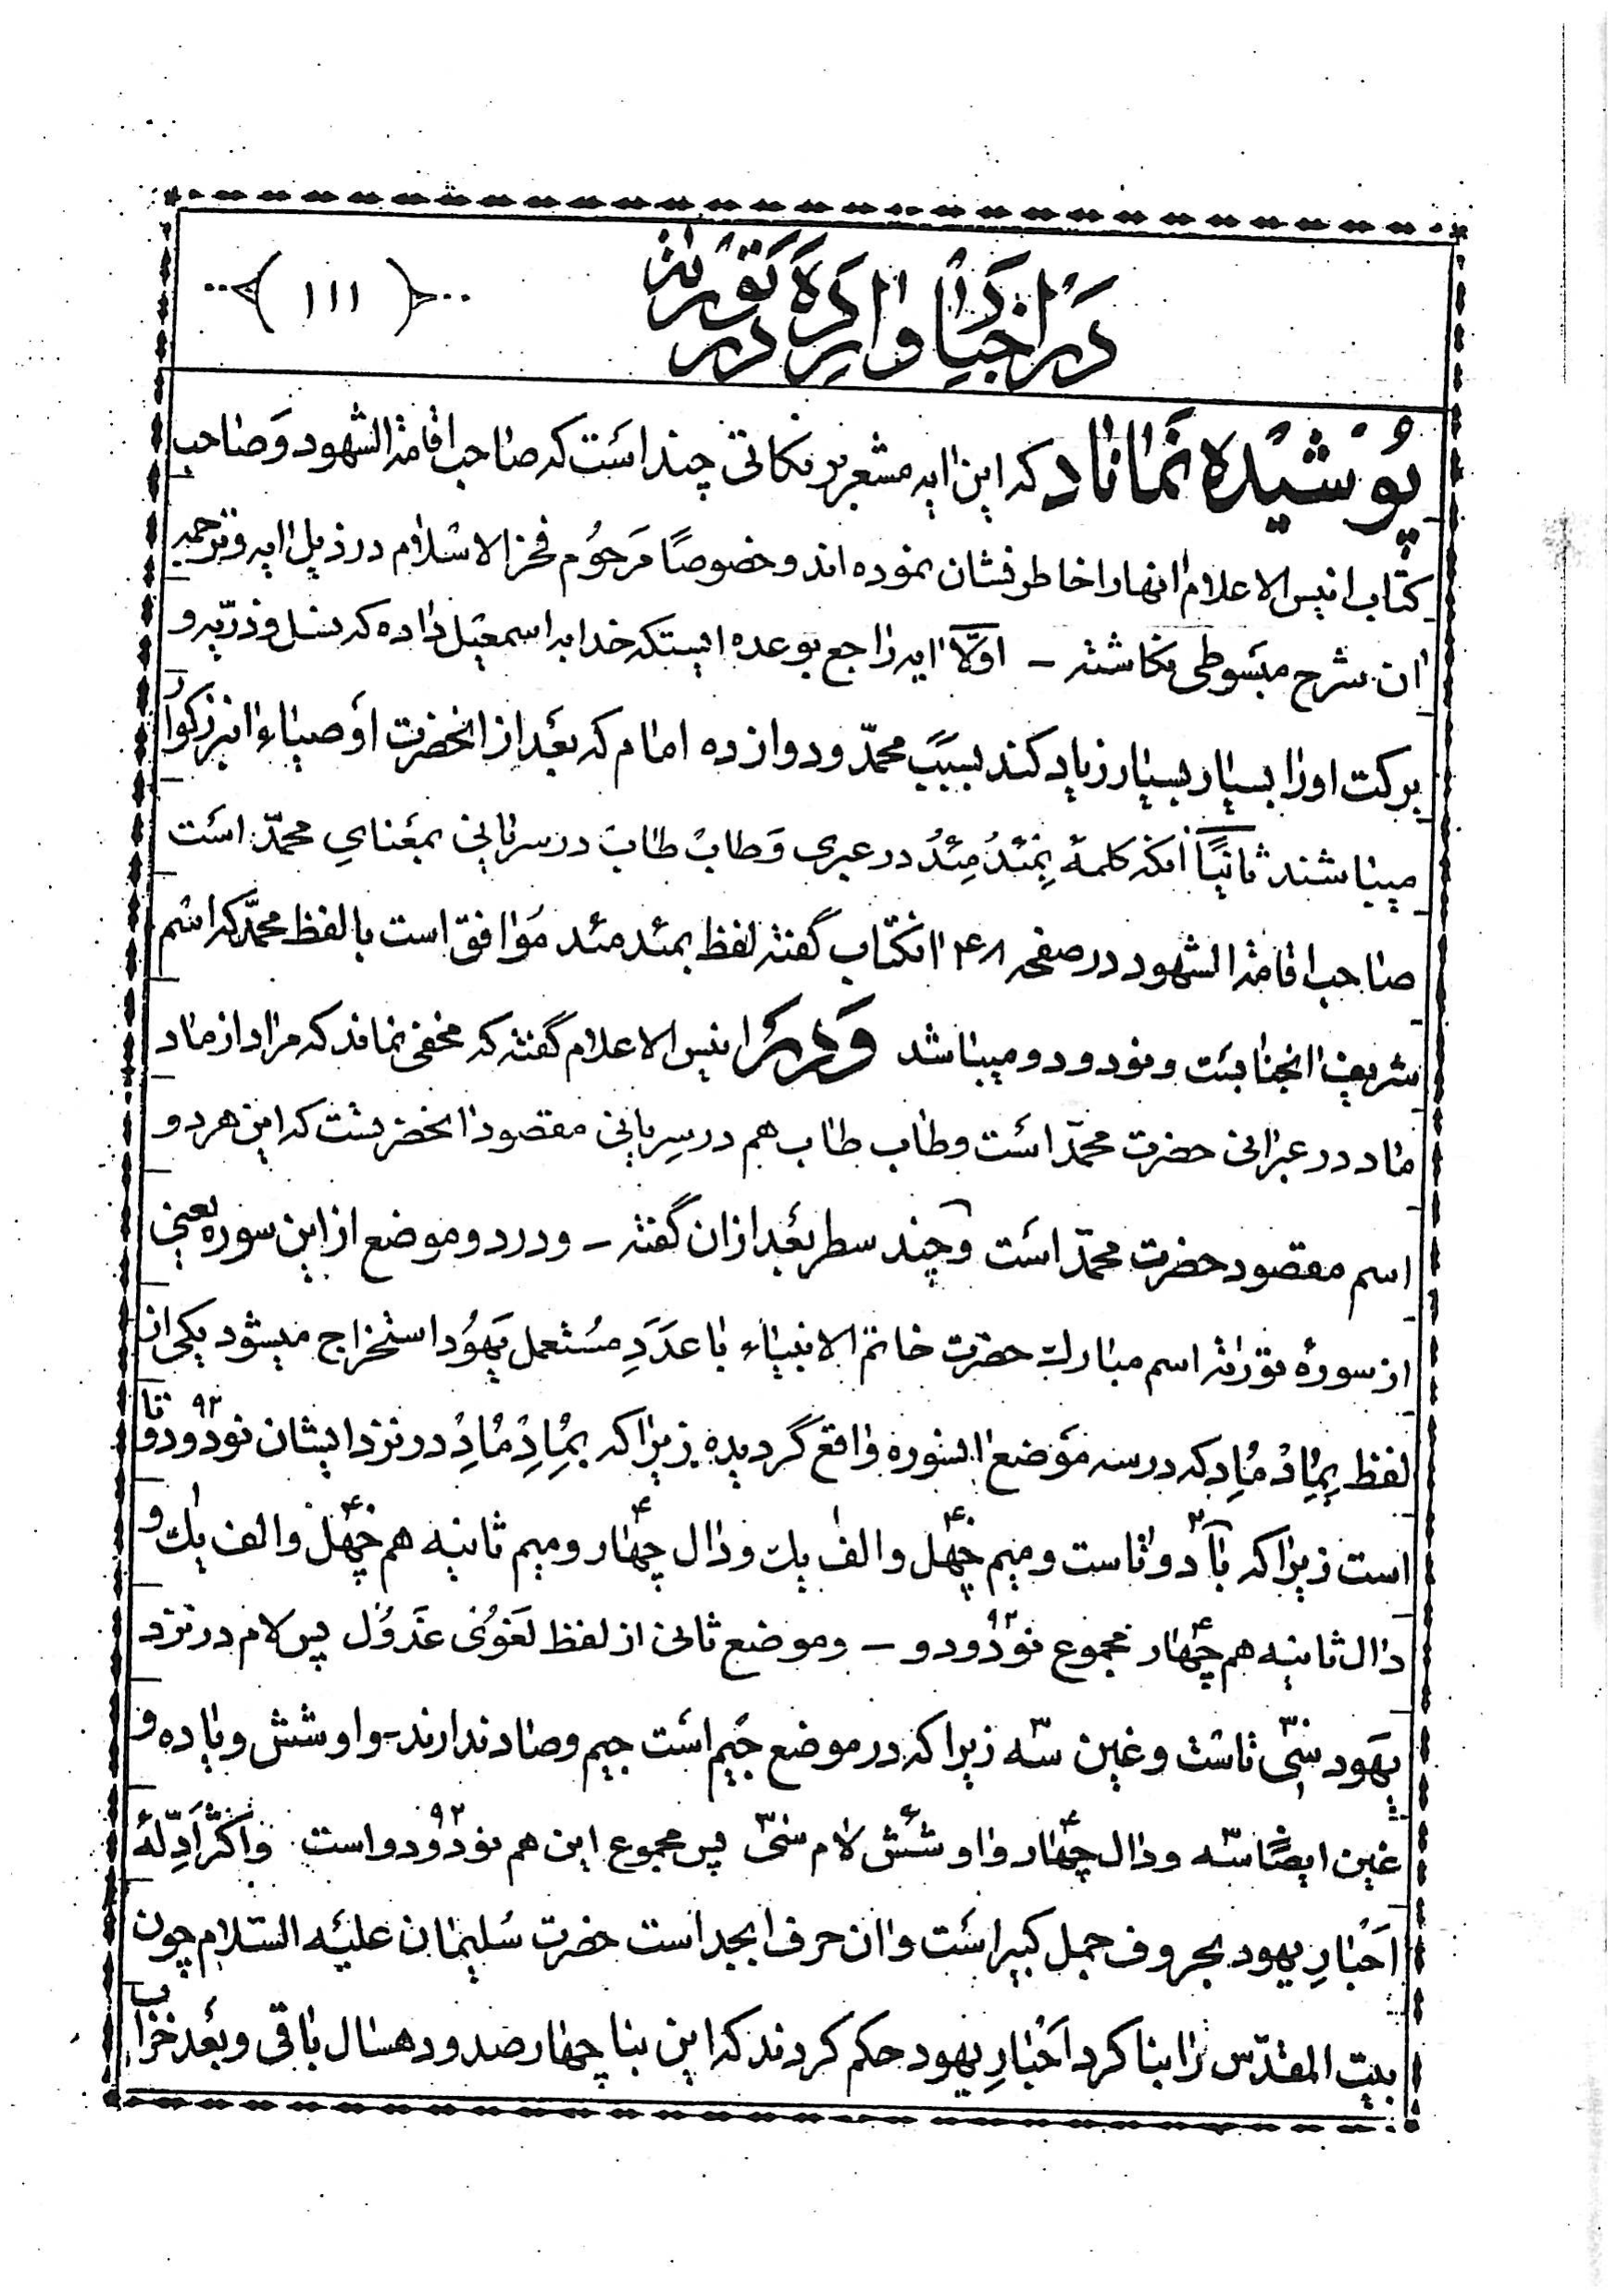 در اخبار وارده در تورىة
﴿ ١١١ ﴾
پوشیده نماناد که این ایه مشعر بر نکاتی چند است که صاحب اقامة الشهود و صاحب
کتاب انیس الاعلام انها را خاطر نشان نموده اند و خصوصًا مرحوم فخر الاسلام در ذیل ایه و ترجمه
ان شرح مبسوطی نکاشته – اوّلًا ایه راجع بوعده ایستکه خدا به اسمعیل داده که نسل و ذرّیه و
برکت او را بسیار بسیار زیاد کند بسبب محمّد و دوازده امام که بعد از انحضرت اوصیاء انبزرکوار
میباشند ثانیًا انکه کلمهٔ بِمَئدْ مِئدْ در عبری وَ طابْ طابْ در سریانی بمعنایِ محمّد است
صاحب اقامة الشهود در صفحه ۴۸ انکتاب گفته لفظ بمئد مئد موافق است با لفظ محمّد که اسم
شریف انجنابست و نود و دو میباشد وَدَر انیس الاعلام گفته که مخفی نماند که مراد از ماد
ماد در عبرانی حضرت محمّد است و طاب طاب هم در سِریانی مقصود انحضرتست که این هر دو
اسم مقصود حضرت محمّد است و چند سطر بعد از ان گفته – و در دو موضع از این سوره یعنی
از سورهٔ تورىة اسم مبارک حضرت خاتم الانبیاء با عَدَدِ مُستعمل یَهوُد استخراج میشود یکی از
لفظ بِمِادْ مٰادِ که در سه موضع السوره واقع گردیده زیرا که بِمِادِ مٰادِ در نزد ایشان نود و دو ٩٢ تا
است زیرا که با دو ٢ تاست و میم چهل ۴٠ و الف یک ١ و دال چهار ۴ و میم ثانیه هم چهل ۴٠ و الف یک ١ و
دال ثانیه هم چهار ۴ مجموع نود و دو ٩٢ – و موضع ثانی از لفظ لغوُی غدوُل پس لام در نزد
یهود سی ٣٠ تاست و غین سه ٣ زیرا که در موضع جیم است جیم و صاد ندارند – واو شش و یا ده و
غین ایضًا سه ٣ و دال چهار ۴ و واو شش ۶ لام سی ٣٠ پس مجموع این هم نود و دو ٩٢ است و اکثر اَدِلّهٔ
اَحْبارِ یهود بحروف جمل کبیر است و ان حرف ابجد است حضرت سُلیمان علیه السّلام چون
بیت المقدّس را بنا کرد اَحْبارِ یهود حکم کردند که این بنا چهار صد و ده سال باقی و بعد خراب